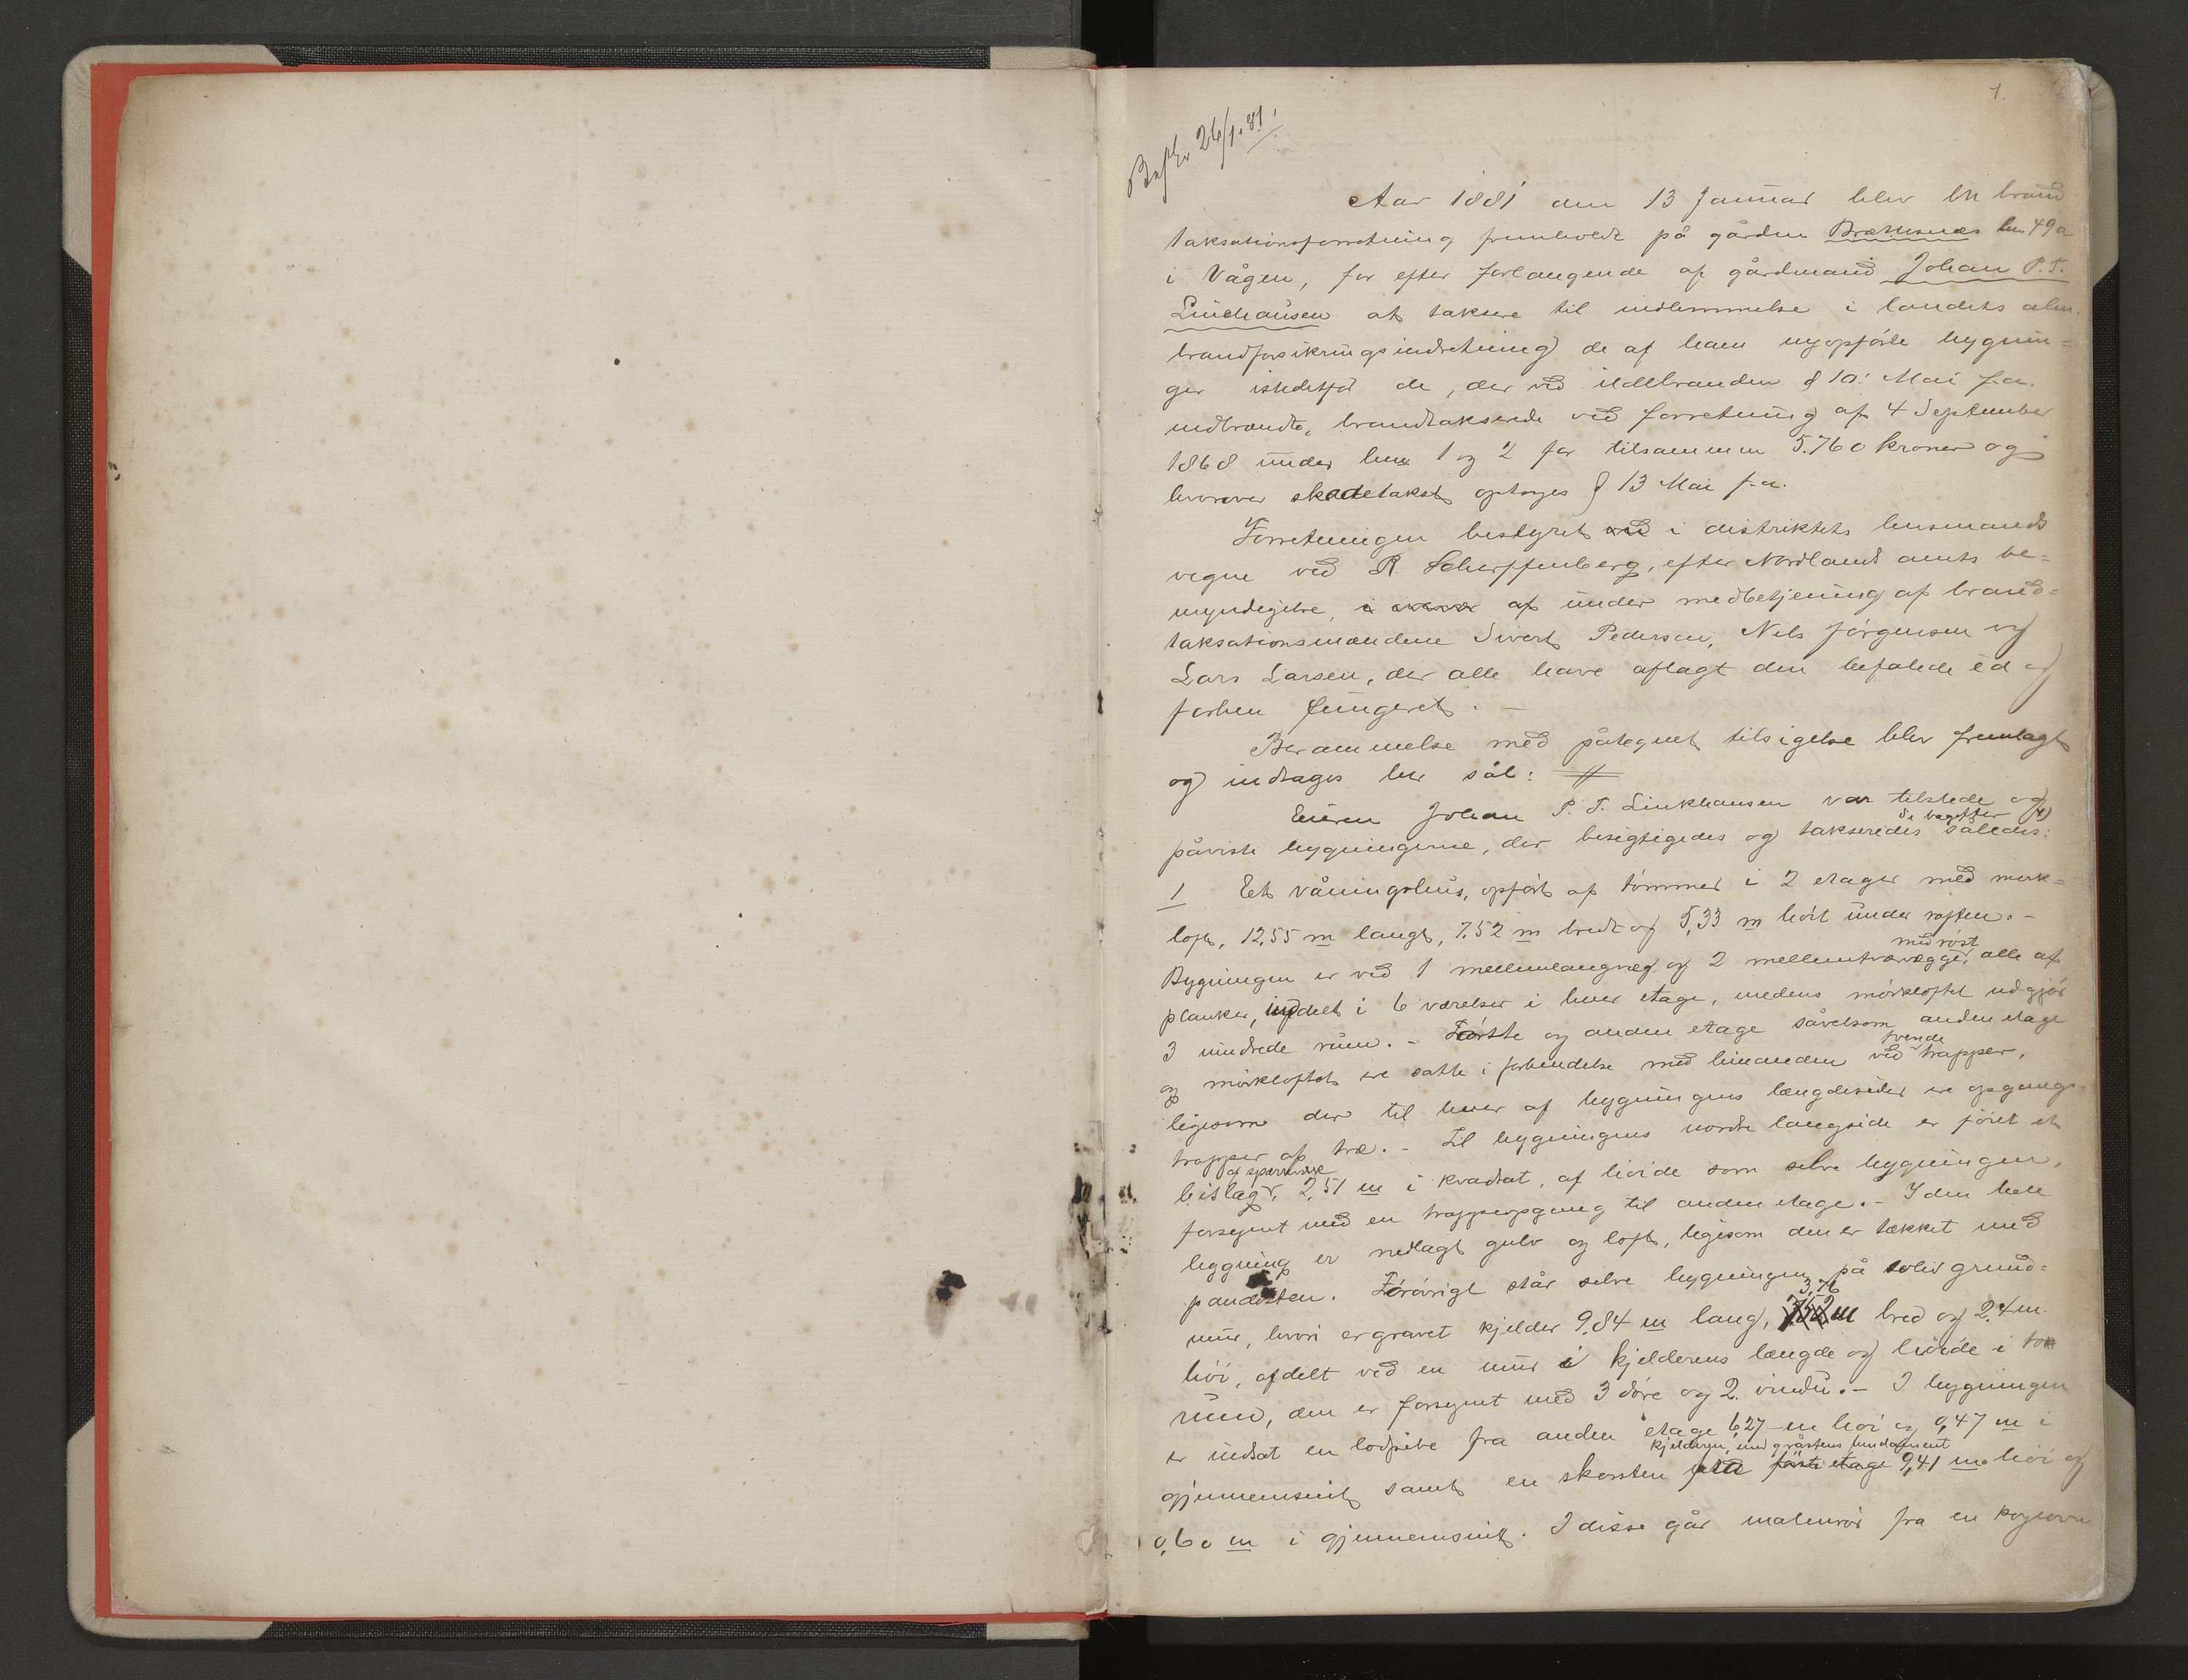 1.
26/1.81.
Aar 1881 den 13 Januar blev en brand
taksationsforretning fremholdt på gården Brettesnæs lnr 49a
i Vågen, for efter forlangende af gårdmand Johan P. T.
Linkhausen at taksere til indlemmelse i landets alm.
brandforsikringsindretning de af ham nyopførte bygnin=
ger istedetfor de, der ved ildebranden d 10. Mai f.a.
nedbrændte, brandtakserede ved forretning af 4 September
1868 under lnr 1 og 2 for tilsammen 5.760 kroner og
hvorover skadetakst optoges d 13 Mai f.a.
Forretningen bestyret ved i distriktets lensmands
vegne ved R. Scherffenberg, efter Nordlands amts be=
myndigelse, af under medbetjening af brand=
taksationsmændene Sivert Pedersen, Nils Jørgensen og
Lars Larsen, der alle have aflagt den befalede ed og
forhen fungeret. –
Berammelse med påtegnet tilsigelse blev fremlagt
og indtages her sål: //
Eieren Johan P. T. Linkhausen var tilstede og
påviste bygningerne, der besigtigedes og takseredes således:
1 Et våningshus, opført af tømmer i 2 etager med mørk=
loft, 12,55 m langt, 7,52 m bredt og 5,33 m høit under raften. –
med røst
Bygningen er ved 1 mellemlangvæg og 2 mellemtværvægge, alle af
planker, inddelt i 6 værelser i hver etage, medens mørkloftet udgjør
3 uindrede rum. – Første og anden etage såvelsom anden etage
tvende
og mørkloftet ere satte i forbindelse med hinanden ved trapper,
ligesom der til hver af bygningens længdesider ere opgangs-
trapper af træ. – Til bygningens nordre langside er føiet et
af sperreværk
bislag, 2,51 m i kvadrat, af høide som selve bygningen,
forsynet med en trappeopgang til anden etage. – I den hele
bygning er nedlagt gulv og loft, ligesom den er tækket med
pandesten. Forøvrigt står selve bygningen på solid grund=
3,76
mur, hvori er gravet kjelder 9,84 m lang, 7,52 m bred og 2,4 m.
høi, afdelt ved en mur i kjelderens længde og høide i to
rum, den er forsynet med 3 døre og 2 vindu. – I bygningen
er indsat en lodpibe fra anden etage 6,27 m høi og 0,47 m i
kjelderen, med gråstens fundament
gjennemsnit samt en skorsten fra første etage 9,41 m høi og
0,60 m i gjennemsnit. I disse går malmrør fra en kogeovn